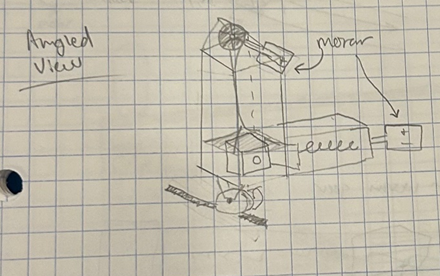 Angled
View
motor